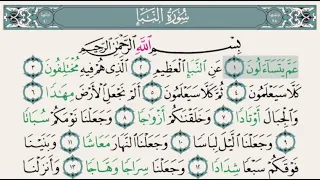 سُورَةُ النَّبَإِ
بِسْمِ اللَّهِ الرَّحْمَٰنِ الرَّحِيمِ
عَمَّ يَتَسَاءَلُونَ ١ عَنِ النَّبَإِ الْعَظِيمِ ٢ الَّذِي هُمْ فِيهِ مُخْتَلِفُونَ ٣
كَلَّا سَيَعْلَمُونَ ٤ ثُمَّ كَلَّا سَيَعْلَمُونَ ٥ أَلَمْ نَجْعَلِ الْأَرْضَ مِهَٰدًا ٦
وَالْجِبَالَ أَوْتَادًا ٧ وَخَلَقْنَٰكُمْ أَزْوَٰجًا ٨ وَجَعَلْنَا نَوْمَكُمْ سُبَاتًا
٩ وَجَعَلْنَا الَّيْلَ لِبَاسًا ١٠ وَجَعَلْنَا النَّهَارَ مَعَاشًا ١١ وَبَنَيْنَا
فَوْقَكُمْ سَبْعًا شِدَادًا ١٢ وَجَعَلْنَا سِرَاجًا وَهَّاجًا ١٣ وَأَنزَلْنَا